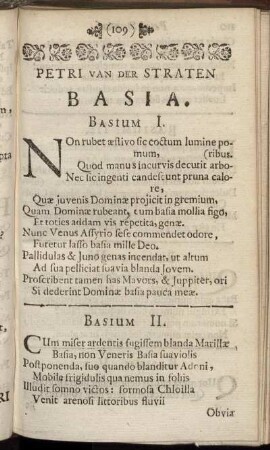 (109)
PETRI VAN DER STRATEN
BASIA.
BASIUM I.
NOn rubet æstivo sic coctum lumine pomum, (ribus.
Quod manus incurvis decutit arbo-
Nec sic ingenti candescunt pruna calore,
Quæ juvenis Dominæ projicit in gremium,
Quam Dominæ rubeant, cum basia mollia figo,
Et toties addam vis repetita, genæ.
Nunc Venus Assyrio sese commendet odore,
Furetur lasso basia mille Deo.
Pallidulas & Juno genas incendat, ut altum
Ad sua pelliciat suavia blanda Jovem.
Proscribent tamen has Mavors, & Juppiter, ori
Si dederint Dominæ basia pauca meæ.
BASIUM II.
CUm miser ardentis sugissem blanda Marillæ
Basia, non Veneris Basia suaviolis
Postponenda, suo quando blanditur Adoni,
Mobile frigidulis qua nemus in foliis
Illudit somno victos: formosa Chloilla
Venit arenosi littoribus fluvii
Obviæ